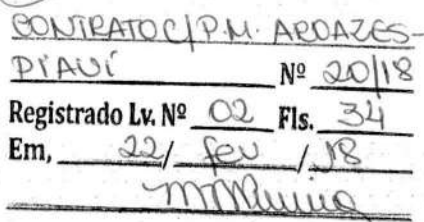 CONTRATO C/ P.M. AROAZES-
PIAUÍ Nº 20/18
Registrado Lv. Nº 02 Fls. 34
Em, 22/ fev / 18